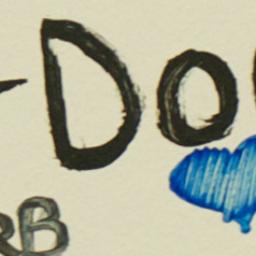 -Do
RB